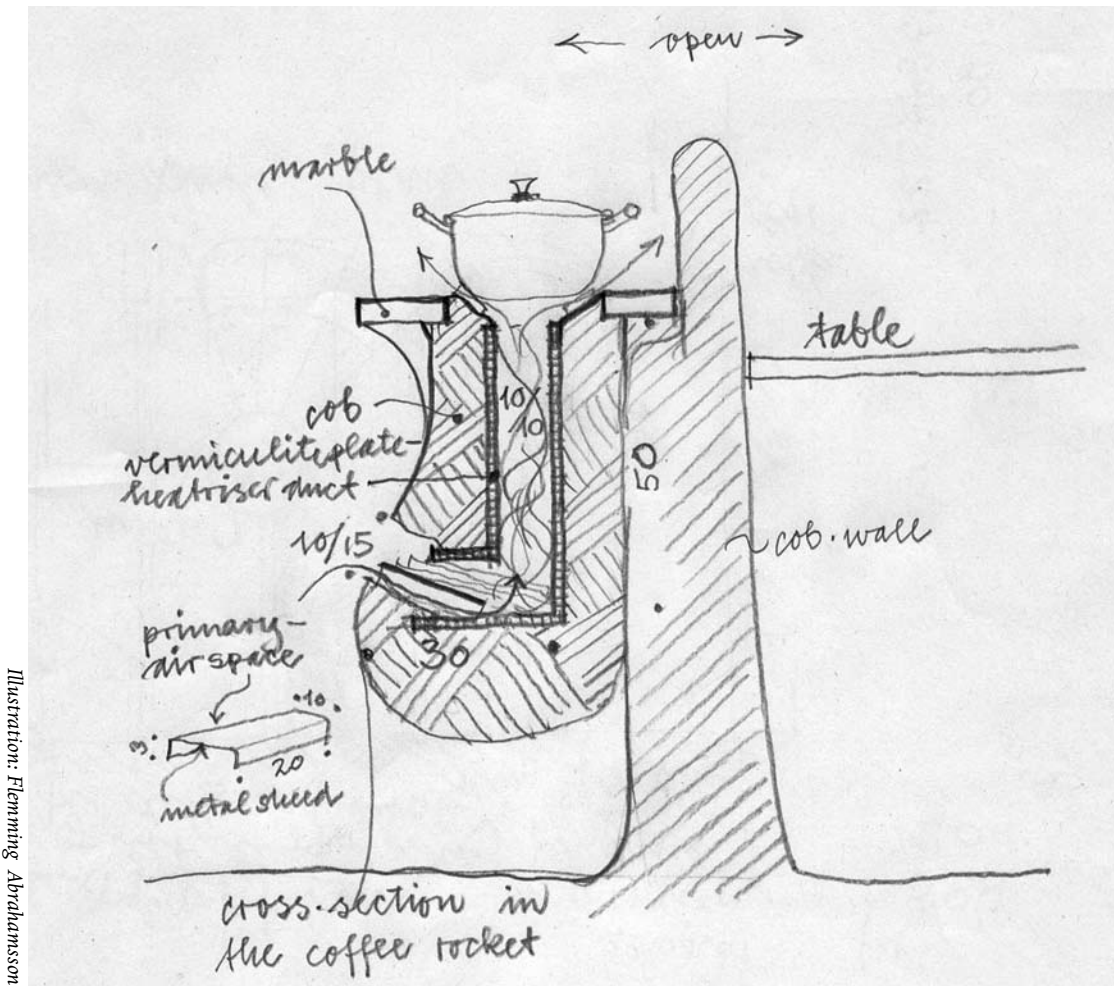 ← open →
marble
table
cob
vermiculiteplate-
heatriser duct
10/
10
50
10/15
cob.wall
primary-
airspace
30
10
3
20
metal sheed
cross.section in
the coffee rocket
Illustration: Flemming Abrahamsson